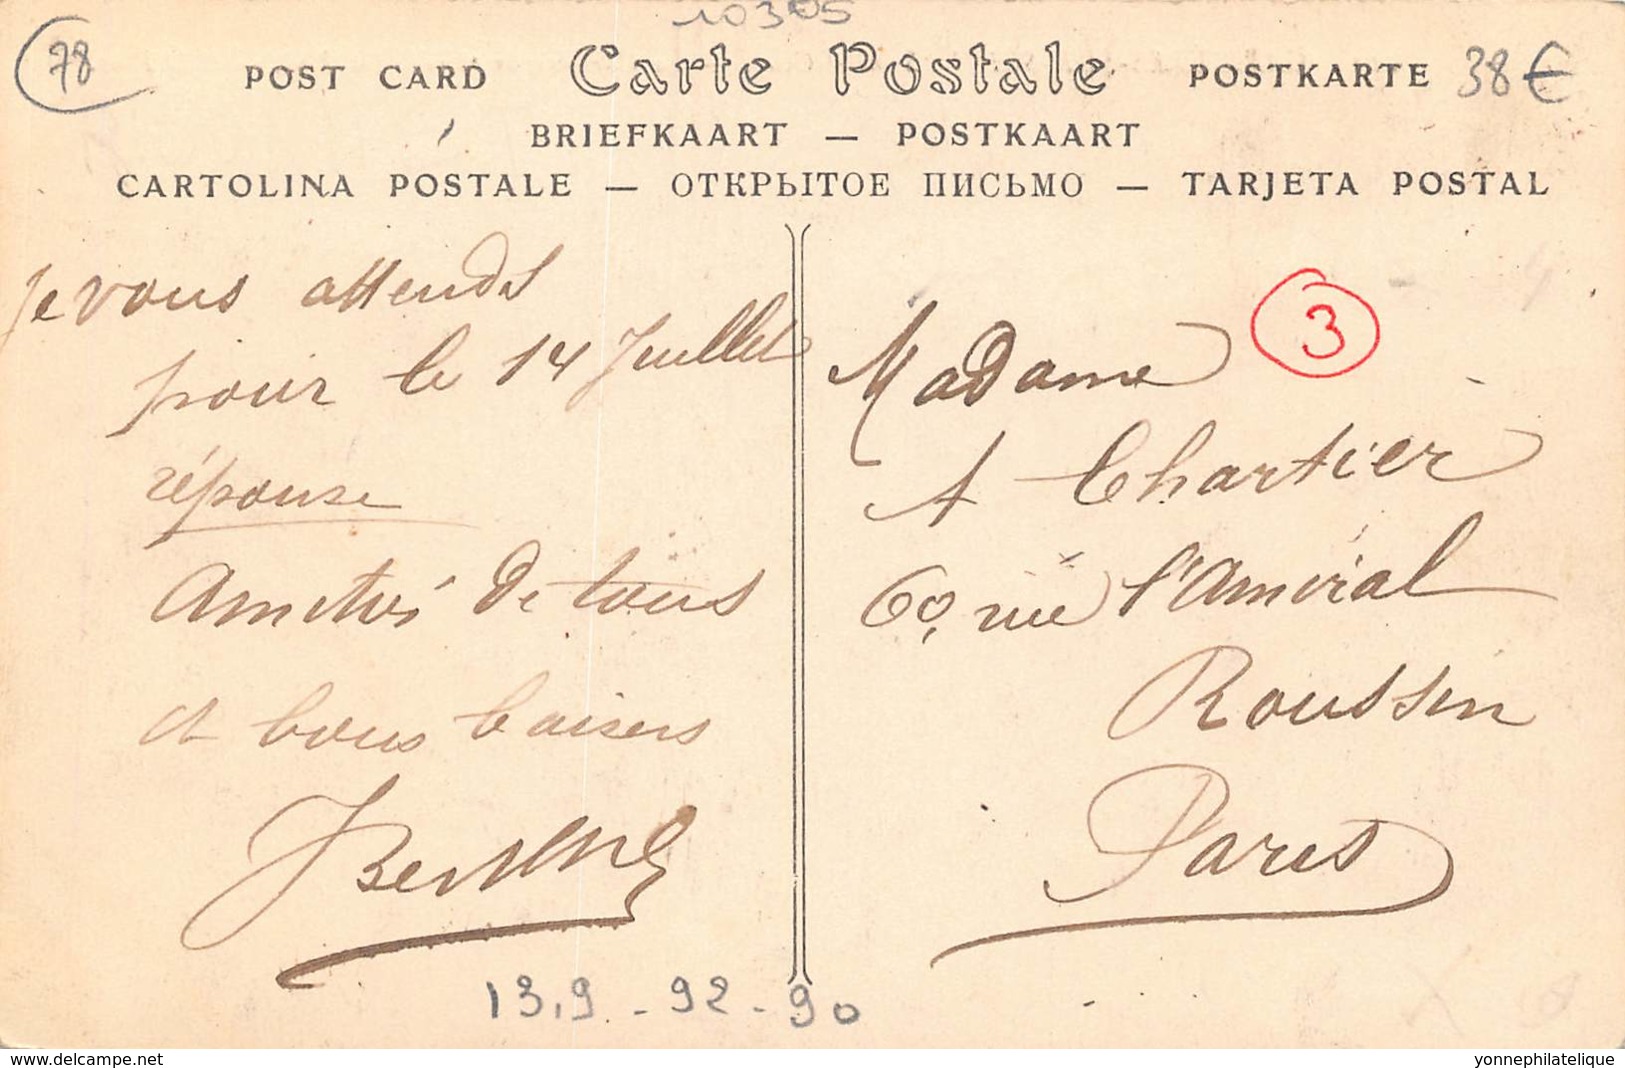 10305
78
POST CARD Carte Postale POSTKARTE 38€
BRIEFKAART — POSTKAART
CARTOLINA POSTALE — ОТКРЫТОЕ ПИСЬМО — TARJETA POSTAL
Je vous attends
pour le 14 Juillet
réponse
Amitiés de tous
et bons baisers
3
Madame
A Chartier
60, rue l'Amiral
Roussin
Paris
13.9 - 92 - 90
www.delcampe.net
yonnephilatelique